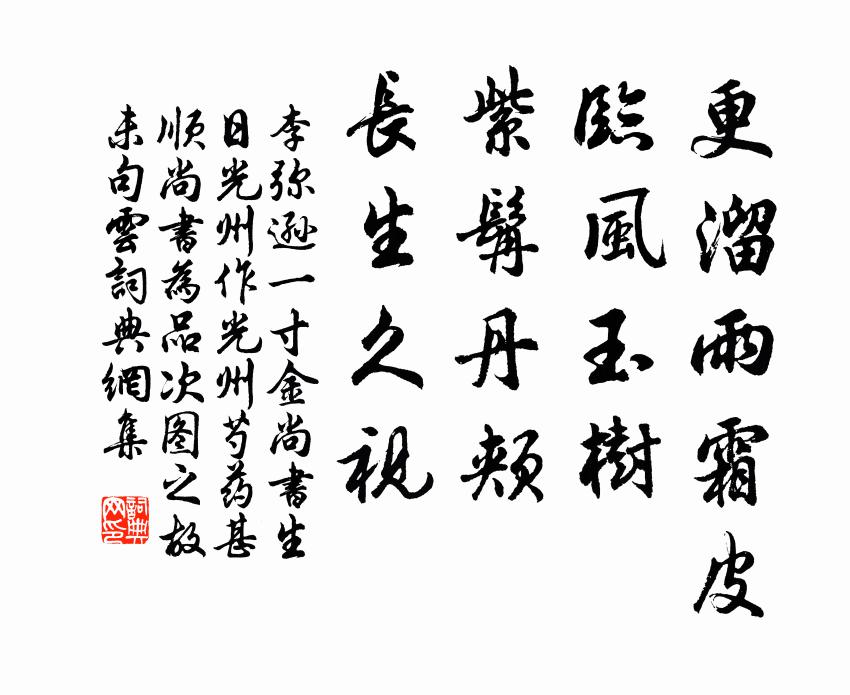 更溜雨霜皮
臨風玉樹
紫髯丹頰
長生久視
李弥遜一寸金尚書生
日光州作光州芍药甚
順尚書為品次图之故
末句雲詞典網集
詞典
网印